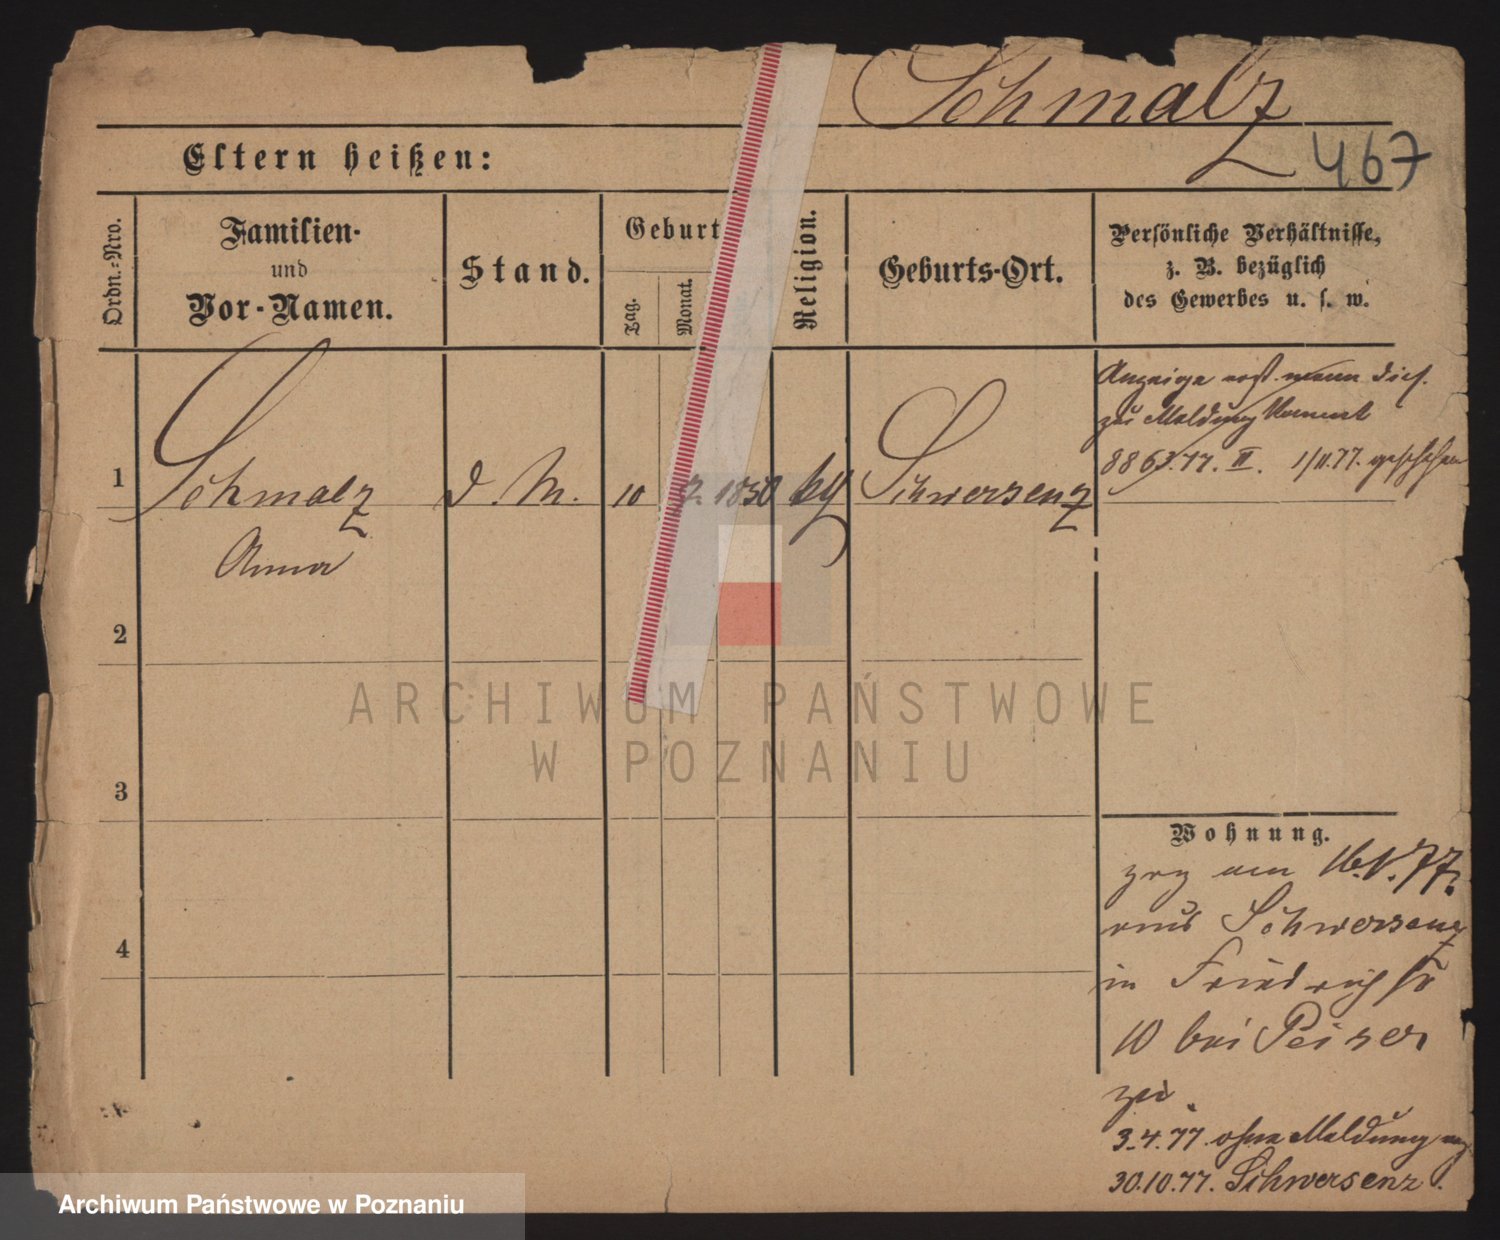 Schmalz
467
Eltern heißen:
Ordn.-Nro.
Familien-
und
Vor-Namen.
Stand.
Geburt
Tag.
Monat.
Religion.
Geburts-Ort.
Persönliche Verhältnisse,
z. B. bezüglich
des Gewerbes u. s. w.
1
Schmalz
Anna
d. M.
10
7. 1850
Schwersenz
Anzeige erst wenn dies.
zur Meldung kommt
1/11.77. geschehen
2
ARCHIWUM PAŃSTWOWE
W POZNANIU
3
4
Wohnung.
zog am 16.V.77.
aus Schwersenz
in Friedrichstr
10 bei Peiser
zu
3.4.77. ohne Meldung
30.10.77. Schwersenz.
Archiwum Państwowe w Poznaniu